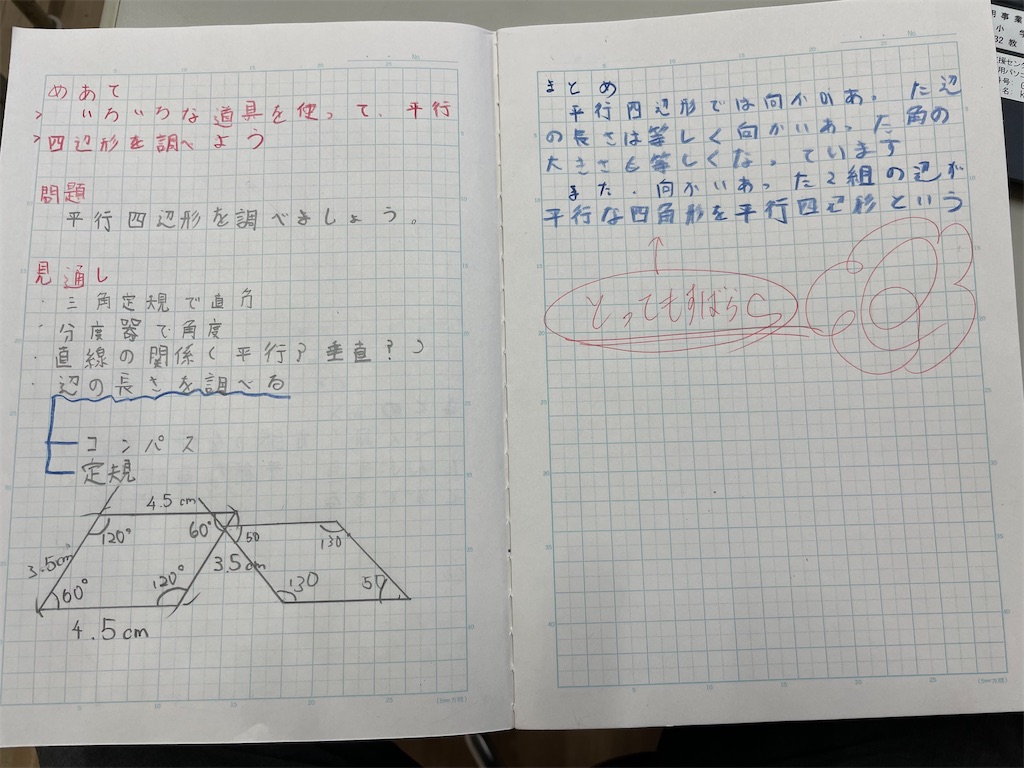 めあて
いろいろな道具を使って、平行
四辺形を調べよう
問題
平行四辺形を調べましょう。
見通し
・三角定規で直角
・分度器で角度
・直線の関係(平行?垂直?)
・辺の長さを調べる
コンパス
定規
4.5cm
120°
60°
50
130
3.5cm
3.5cm
60°
120°
130
50
4.5cm
まとめ
平行四辺形では向かいあった辺
の長さは等しく向かいあった角の
大きさも等しくなっています
また、向かいあった2組の辺が
平行な四角形を平行四辺形という
とってもすばらし